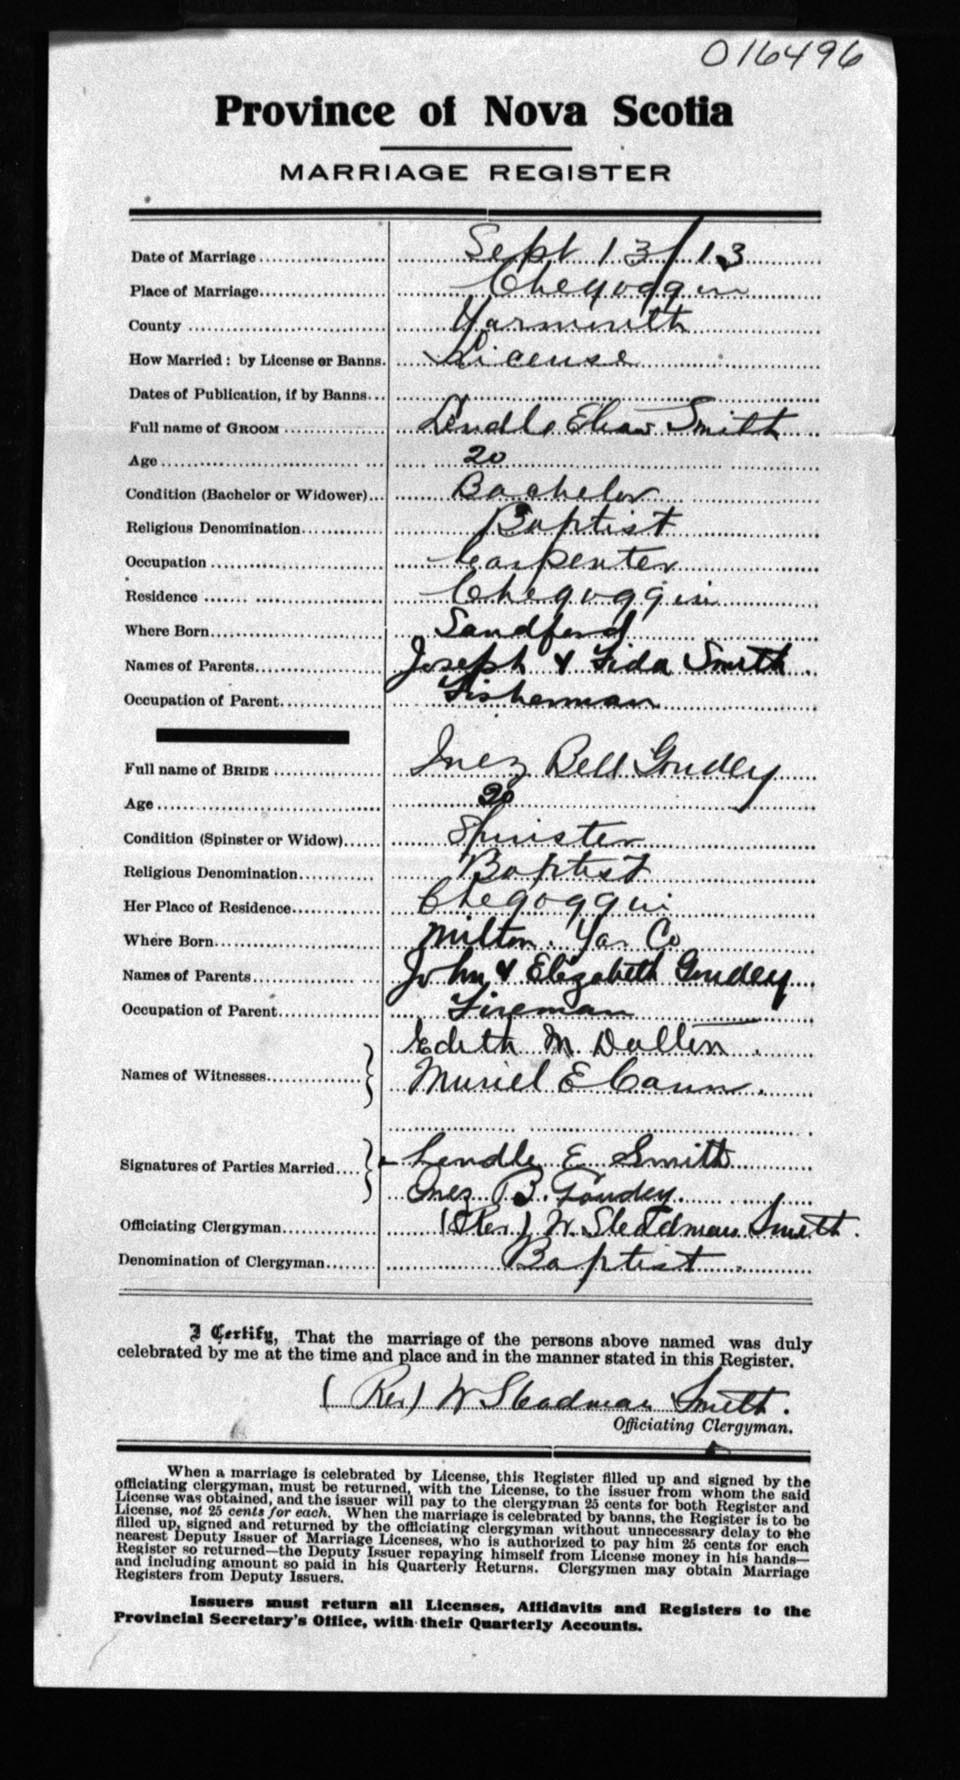 016496
Province of Nova Scotia
MARRIAGE REGISTER
Date of Marriage Sept 13/13
Place of Marriage Chegoggin
County Yarmouth
How Married: by License or Banns. License
Dates of Publication, if by Banns
Full name of GROOM Lendle Smith
Age 20
Condition (Bachelor or Widower) Bachelor
Religious Denomination Baptist
Occupation Carpenter
Residence Chegoggin
Where Born Sandford
Names of Parents Joseph & Smith
Occupation of Parent Fisherman
Full name of BRIDE Inez Bell Goudey
Age 20
Condition (Spinster or Widow) Spinster
Religious Denomination Baptist
Her Place of Residence Chegoggin
Where Born Milton. Yar Co
Names of Parents John & Elizabeth Goudey
Occupation of Parent Fireman
Edith M
Names of Witnesses Muriel E Cann.
Signatures of Parties Married Lendle E Smith
Inez B. Goudey.
Officiating Clergyman (Rev) W. Steadman Smith.
Denomination of Clergyman Baptist
I Certify, That the marriage of the persons above named was duly
celebrated by me at the time and place and in the manner stated in this Register.
(Rev) W Steadman Smith.
Officiating Clergyman.
When a marriage is celebrated by License, this Register filled up and signed by the
officiating clergyman, must be returned, with the License, to the issuer from whom the said
License was obtained, and the issuer will pay to the clergyman 25 cents for both Register and
License, not 25 cents for each. When the marriage is celebrated by banns, the Register is to be
filled up, signed and returned by the officiating clergyman without unnecessary delay to the
nearest Deputy Issuer of Marriage Licenses, who is authorized to pay him 25 cents for each
Register so returned—the Deputy Issuer repaying himself from License money in his hands—
and including amount so paid in his Quarterly Returns. Clergymen may obtain Marriage
Registers from Deputy Issuers.
Issuers must return all Licenses, Affidavits and Registers to the
Provincial Secretary's Office, with their Quarterly Accounts.